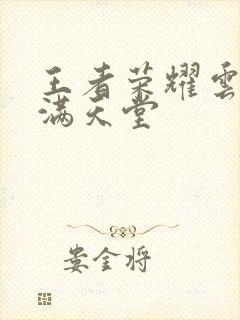 王者荣耀雲
满天堂
娄金将